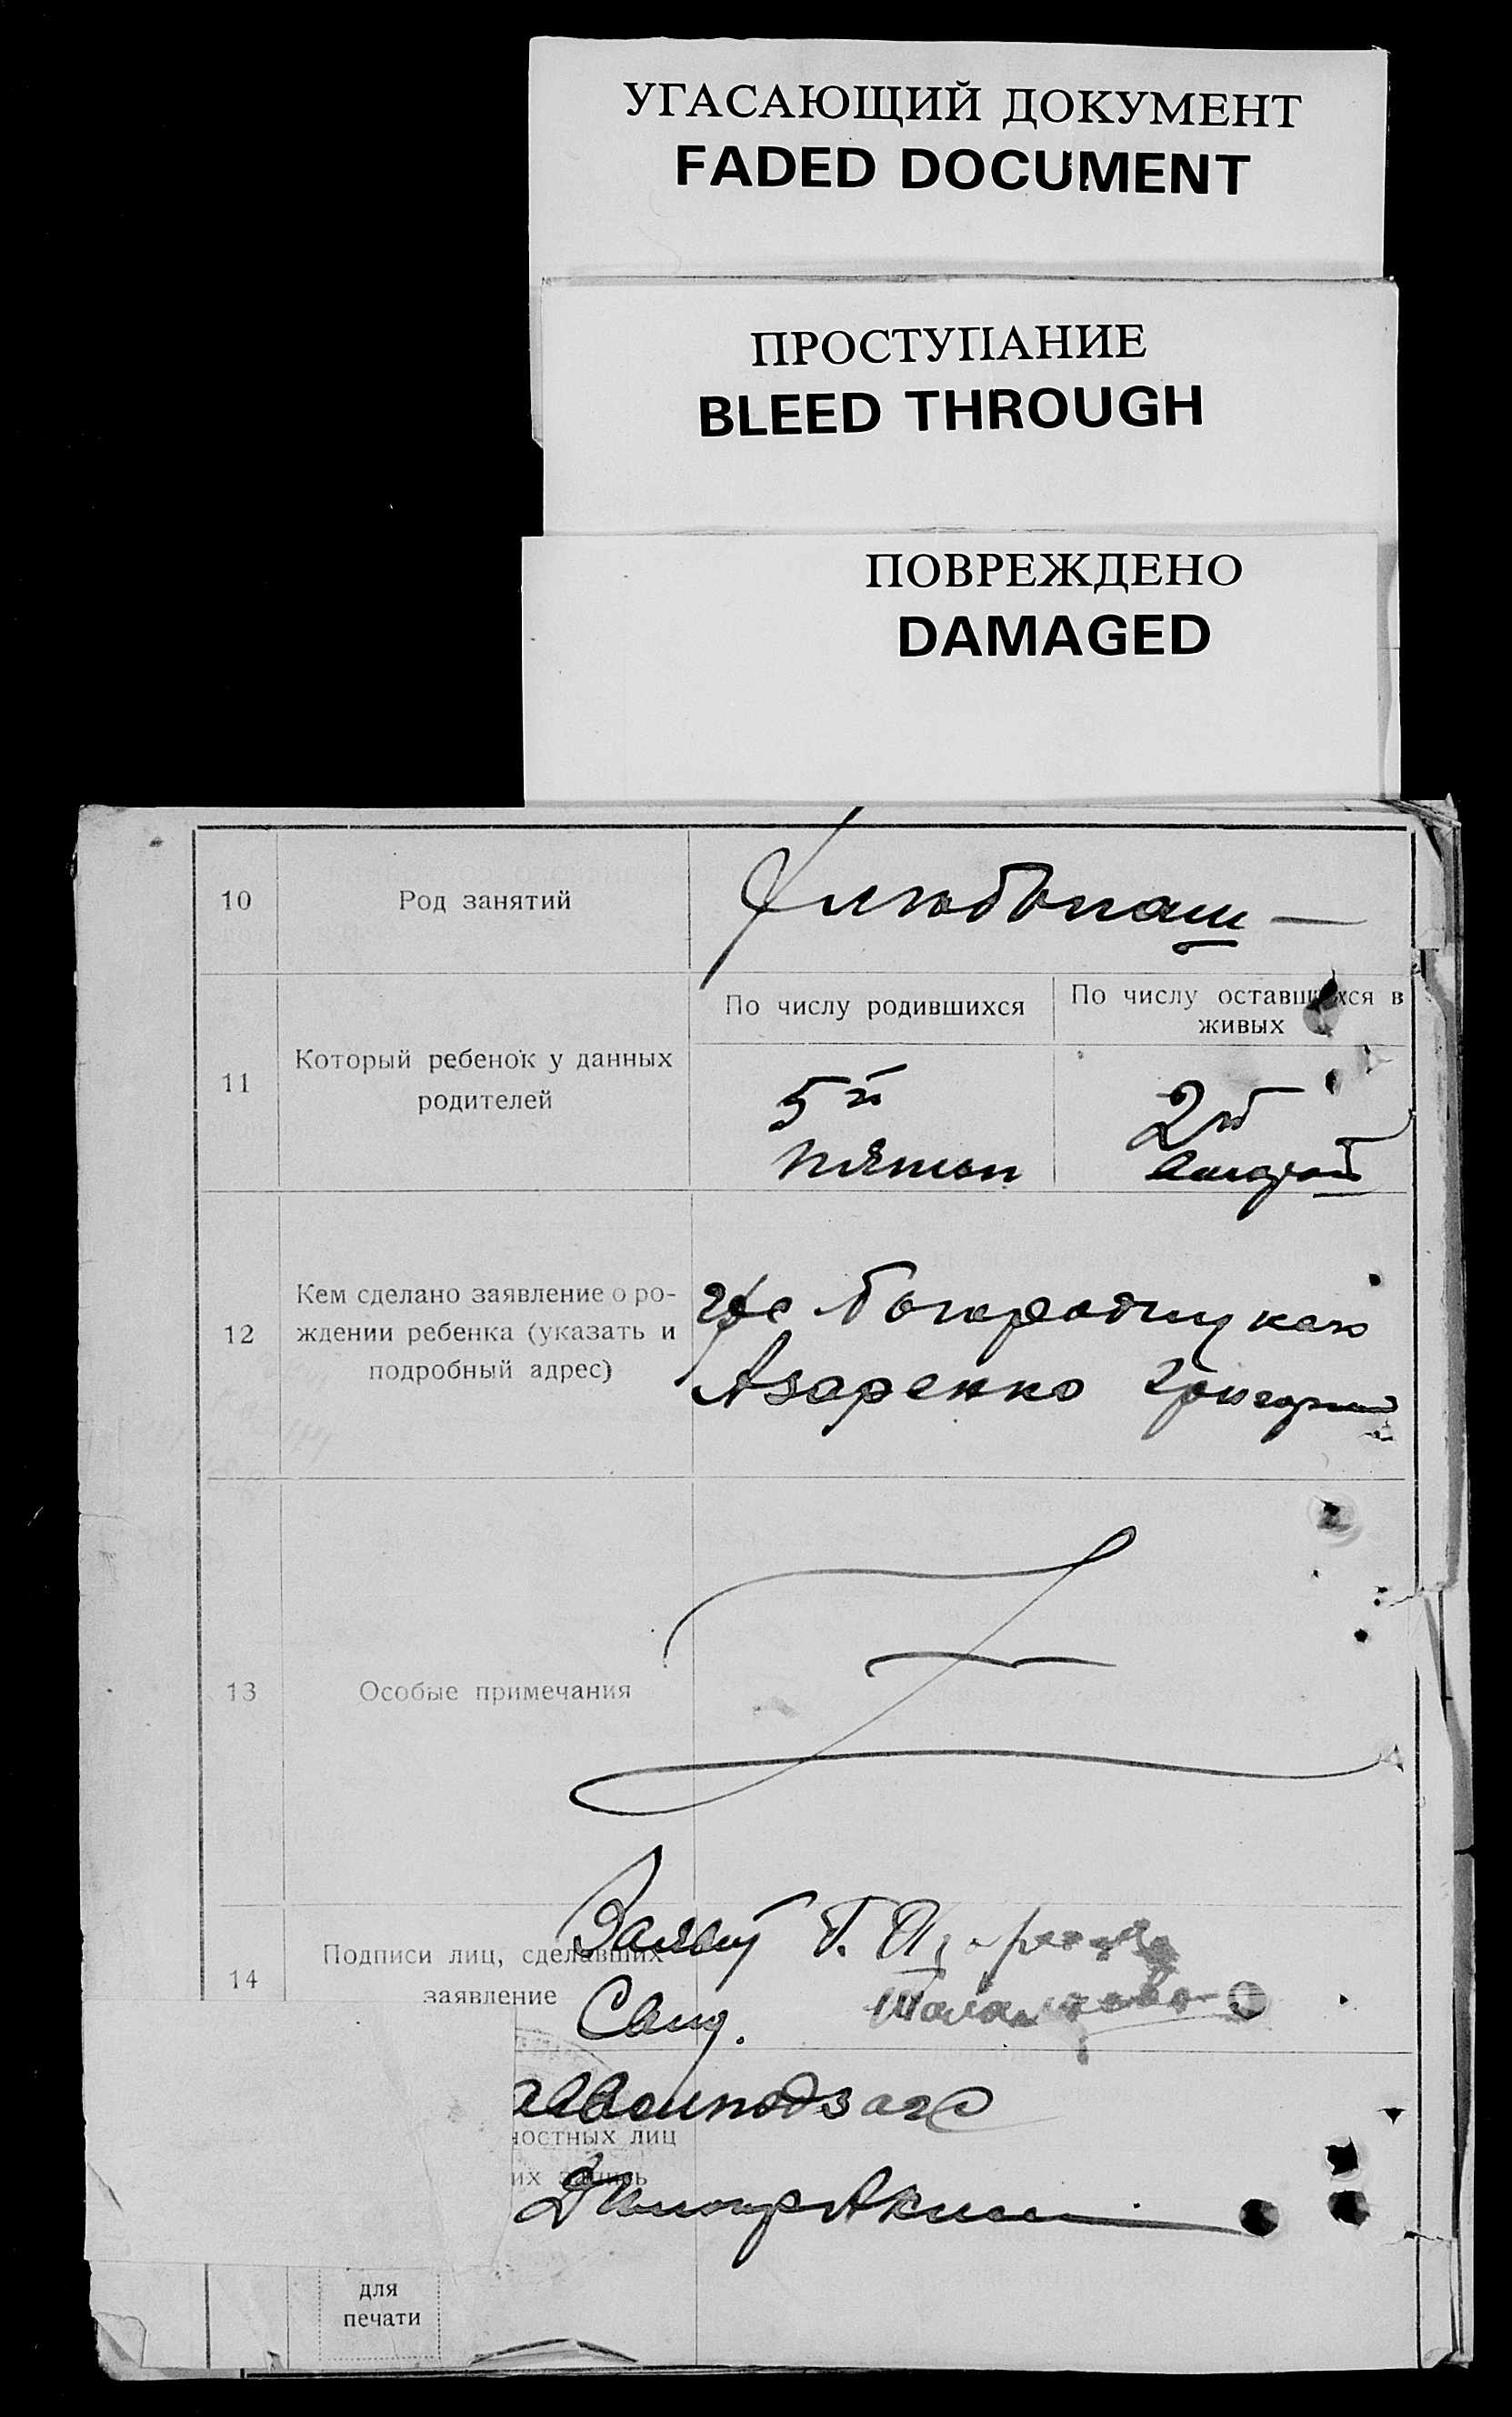 УГАСАЮЩИЙ ДОКУМЕНТ
FADED DOCUMENT
ПРОСТУПАНИЕ
BLEED THROUGH
ПОВРЕЖДЕНО
DAMAGED
10
Род занятий
Хлюбопаш
11
Который ребенок у данных
родителей
По числу родившихся
По числу оставшихся в
живых
5й
пятый
2й
12
Кем сделано заявление о ро-
ждении ребенка (указать и
подробный адрес)
Азаренко Григорий
13
Особые примечания
14
Подписи лиц, сделавших
заявление
Г.
Свид.
ностных лиц
их запись
для
печати